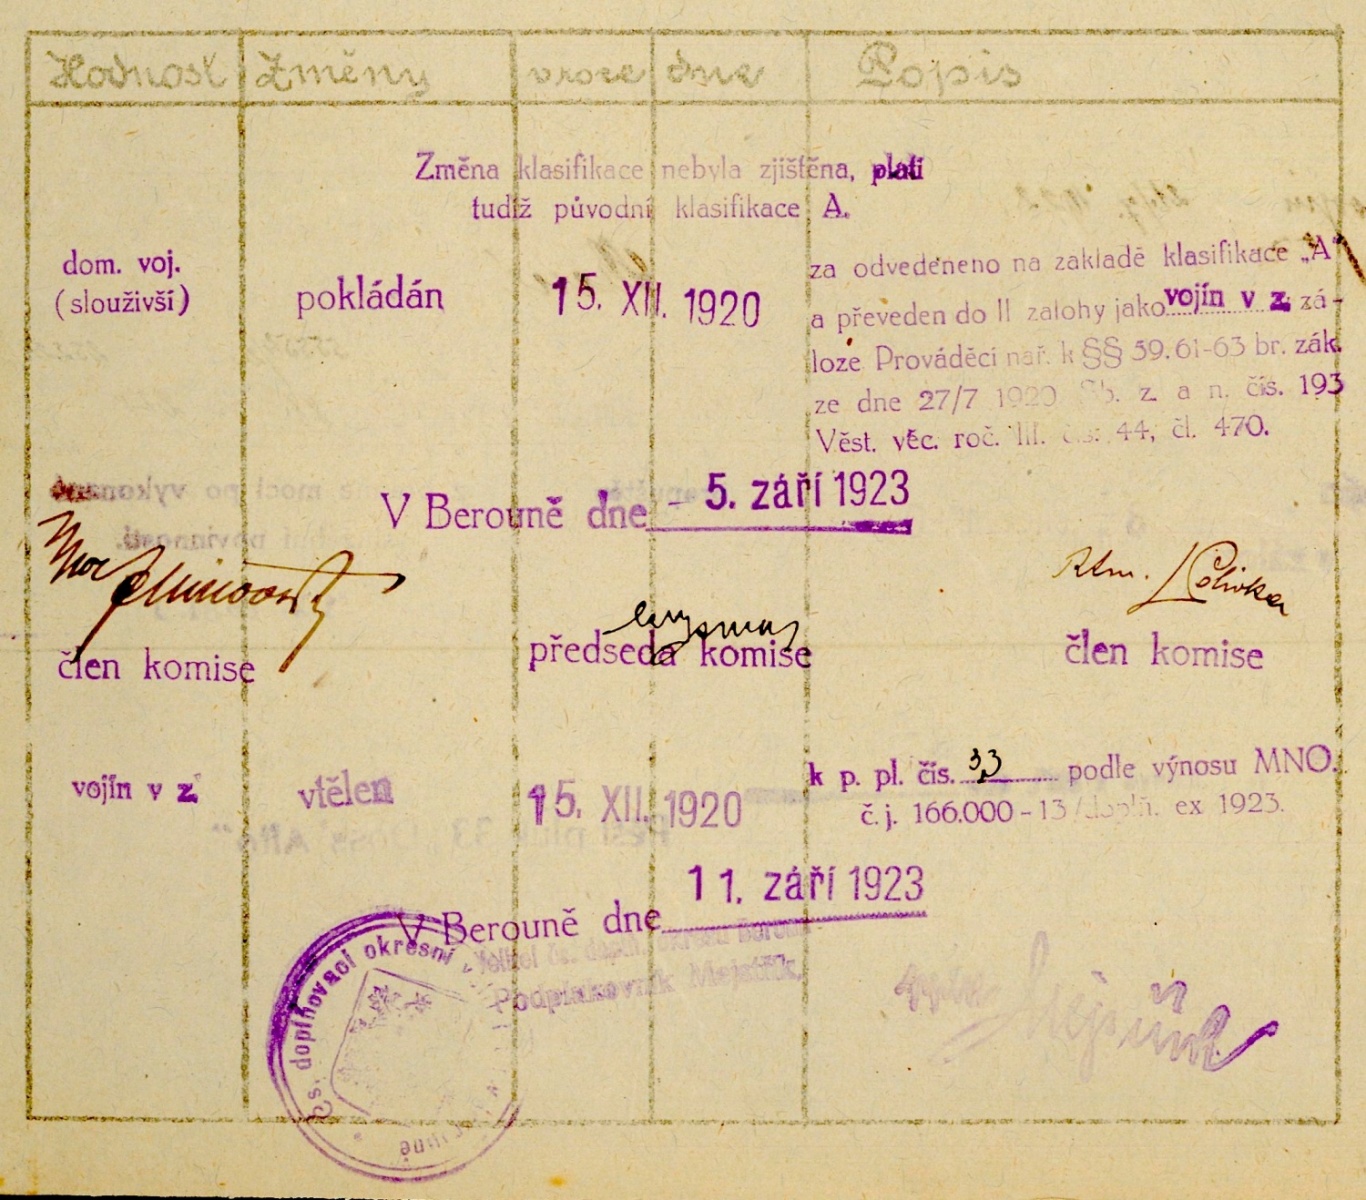 Hodnost Změny v roce dne Popis
Změna klasifikace nebyla zjištěna, platí
tudíž původní klasifikace A.
dom. voj.
(slouživší)
pokládán
15. XII. 1920
za odvedeneno na základě klasifikace „A"
a převeden do II zálohy jako vojín v z. zá-
loze Prováděcí nař. k §§ 59. 61-63 br. zák.
ze dne 27/7 1920 Sb. z. a n. čís. 193
Věst. věc. roč. III. čís. 44, čl. 470.
V Berouně dne 5. září 1923
Rtm.
člen komise
předseda komise
člen komise
vojín v z.
vtělen
15. XII. 1920
k p. pl. čís. 33 podle výnosu MNO.
č. j. 166.000-13/doplň. ex 1923.
V Berouně dne 11. září 1923
Čs. doplňovací okresní
Velitel čs. doplň. okresu Beroun
Podplukovník Mejstřík.
Mejstřík